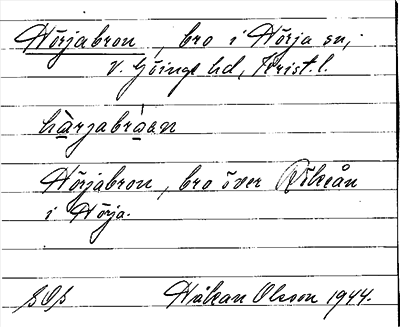 Hörjabron, bro i Hörja sn,
V. Göinge hd, Krist. l.
hàrjabráan
Hörjabron, bro över Rökeån
i Hörja.
SOS Håkan Olsson 1944.